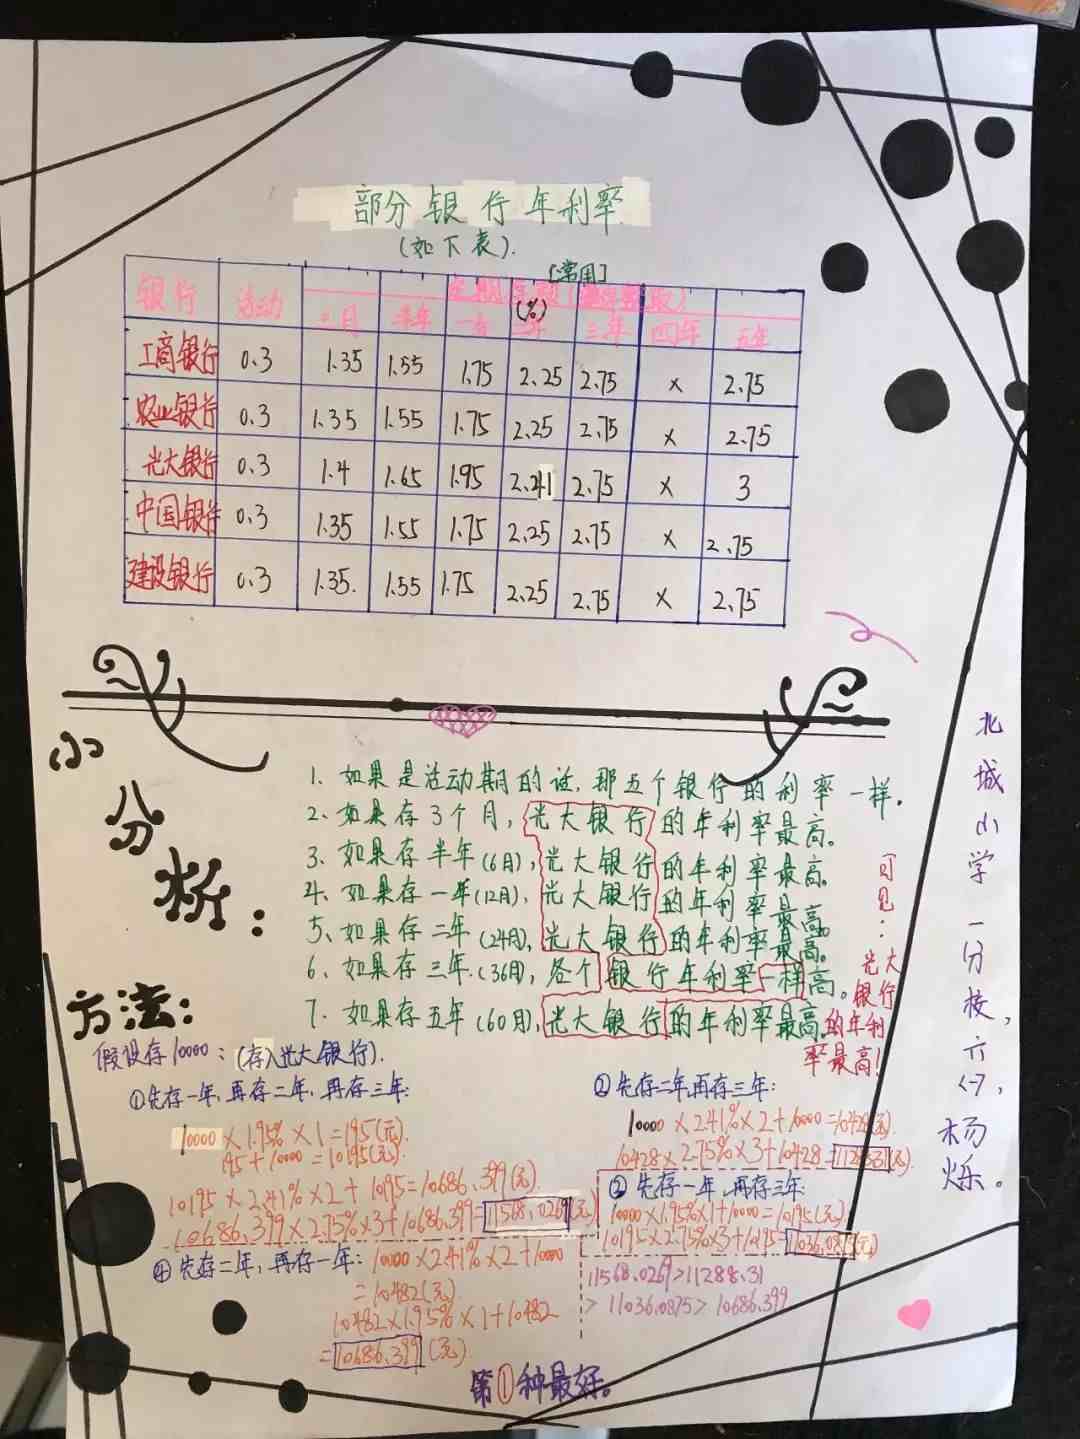 部分银行年利率
(如下表).
[常用]
银行 活动
(%)
三月 半年 一年 二年 三年 四年 五年
工商银行 0.3 1.35 1.55 1.75 2.25 2.75 × 2.75
农业银行 0.3 1.35 1.55 1.75 2.25 2.75 × 2.75
光大银行 0.3 1.4 1.65 1.95 2.41 2.75 × 3
中国银行 0.3 1.35 1.55 1.75 2.25 2.75 × 2.75
建设银行 0.3 1.35. 1.55 1.75 2.25 2.75 × 2.75
小分析:
1、如果是活动期的话,那五个银行的利率一样.
2、如果存3个月,光大银行的年利率最高。
3、如果存半年(6月),光大银行的年利率最高。
4、如果存一年(12月),光大银行的年利率最高。
5、如果存二年(24月),光大银行的年利率最高。
6、如果存三年.(36月),各个银行年利率一样高。
7、如果存五年(60月),光大银行的年利率最高.
可见:光大
银行
的年利
率最高!
北城小学一分校,六<一>,
杨烁。
方法:
假设存10000:(存入光大银行).
①先存一年,再存二年,再存三年:
10000×1.95%×1=195(元).
195+10000=10195(元).
10195×2.41%×2+10195=10686.399(元).
10686.399×2.75%×3+10686.399=11568.0269(元)
②先存二年,再存三年:
10000×2.41%×2+10000=10428(元).
10428×2.75%×3+10428=11288.31(元).
③先存一年,再存三年:
10000×1.95%×1+10000=10195(元)
10195×2.75%×3+10195=11036.0875(元)
④先存二年,再存一年:10000×2.41%×2+10000
=10482(元)
10482×1.95%×1+10482
=10686.399(元).
11568.0269>11288.31
>11036.0875>10686.399
第①种最好。